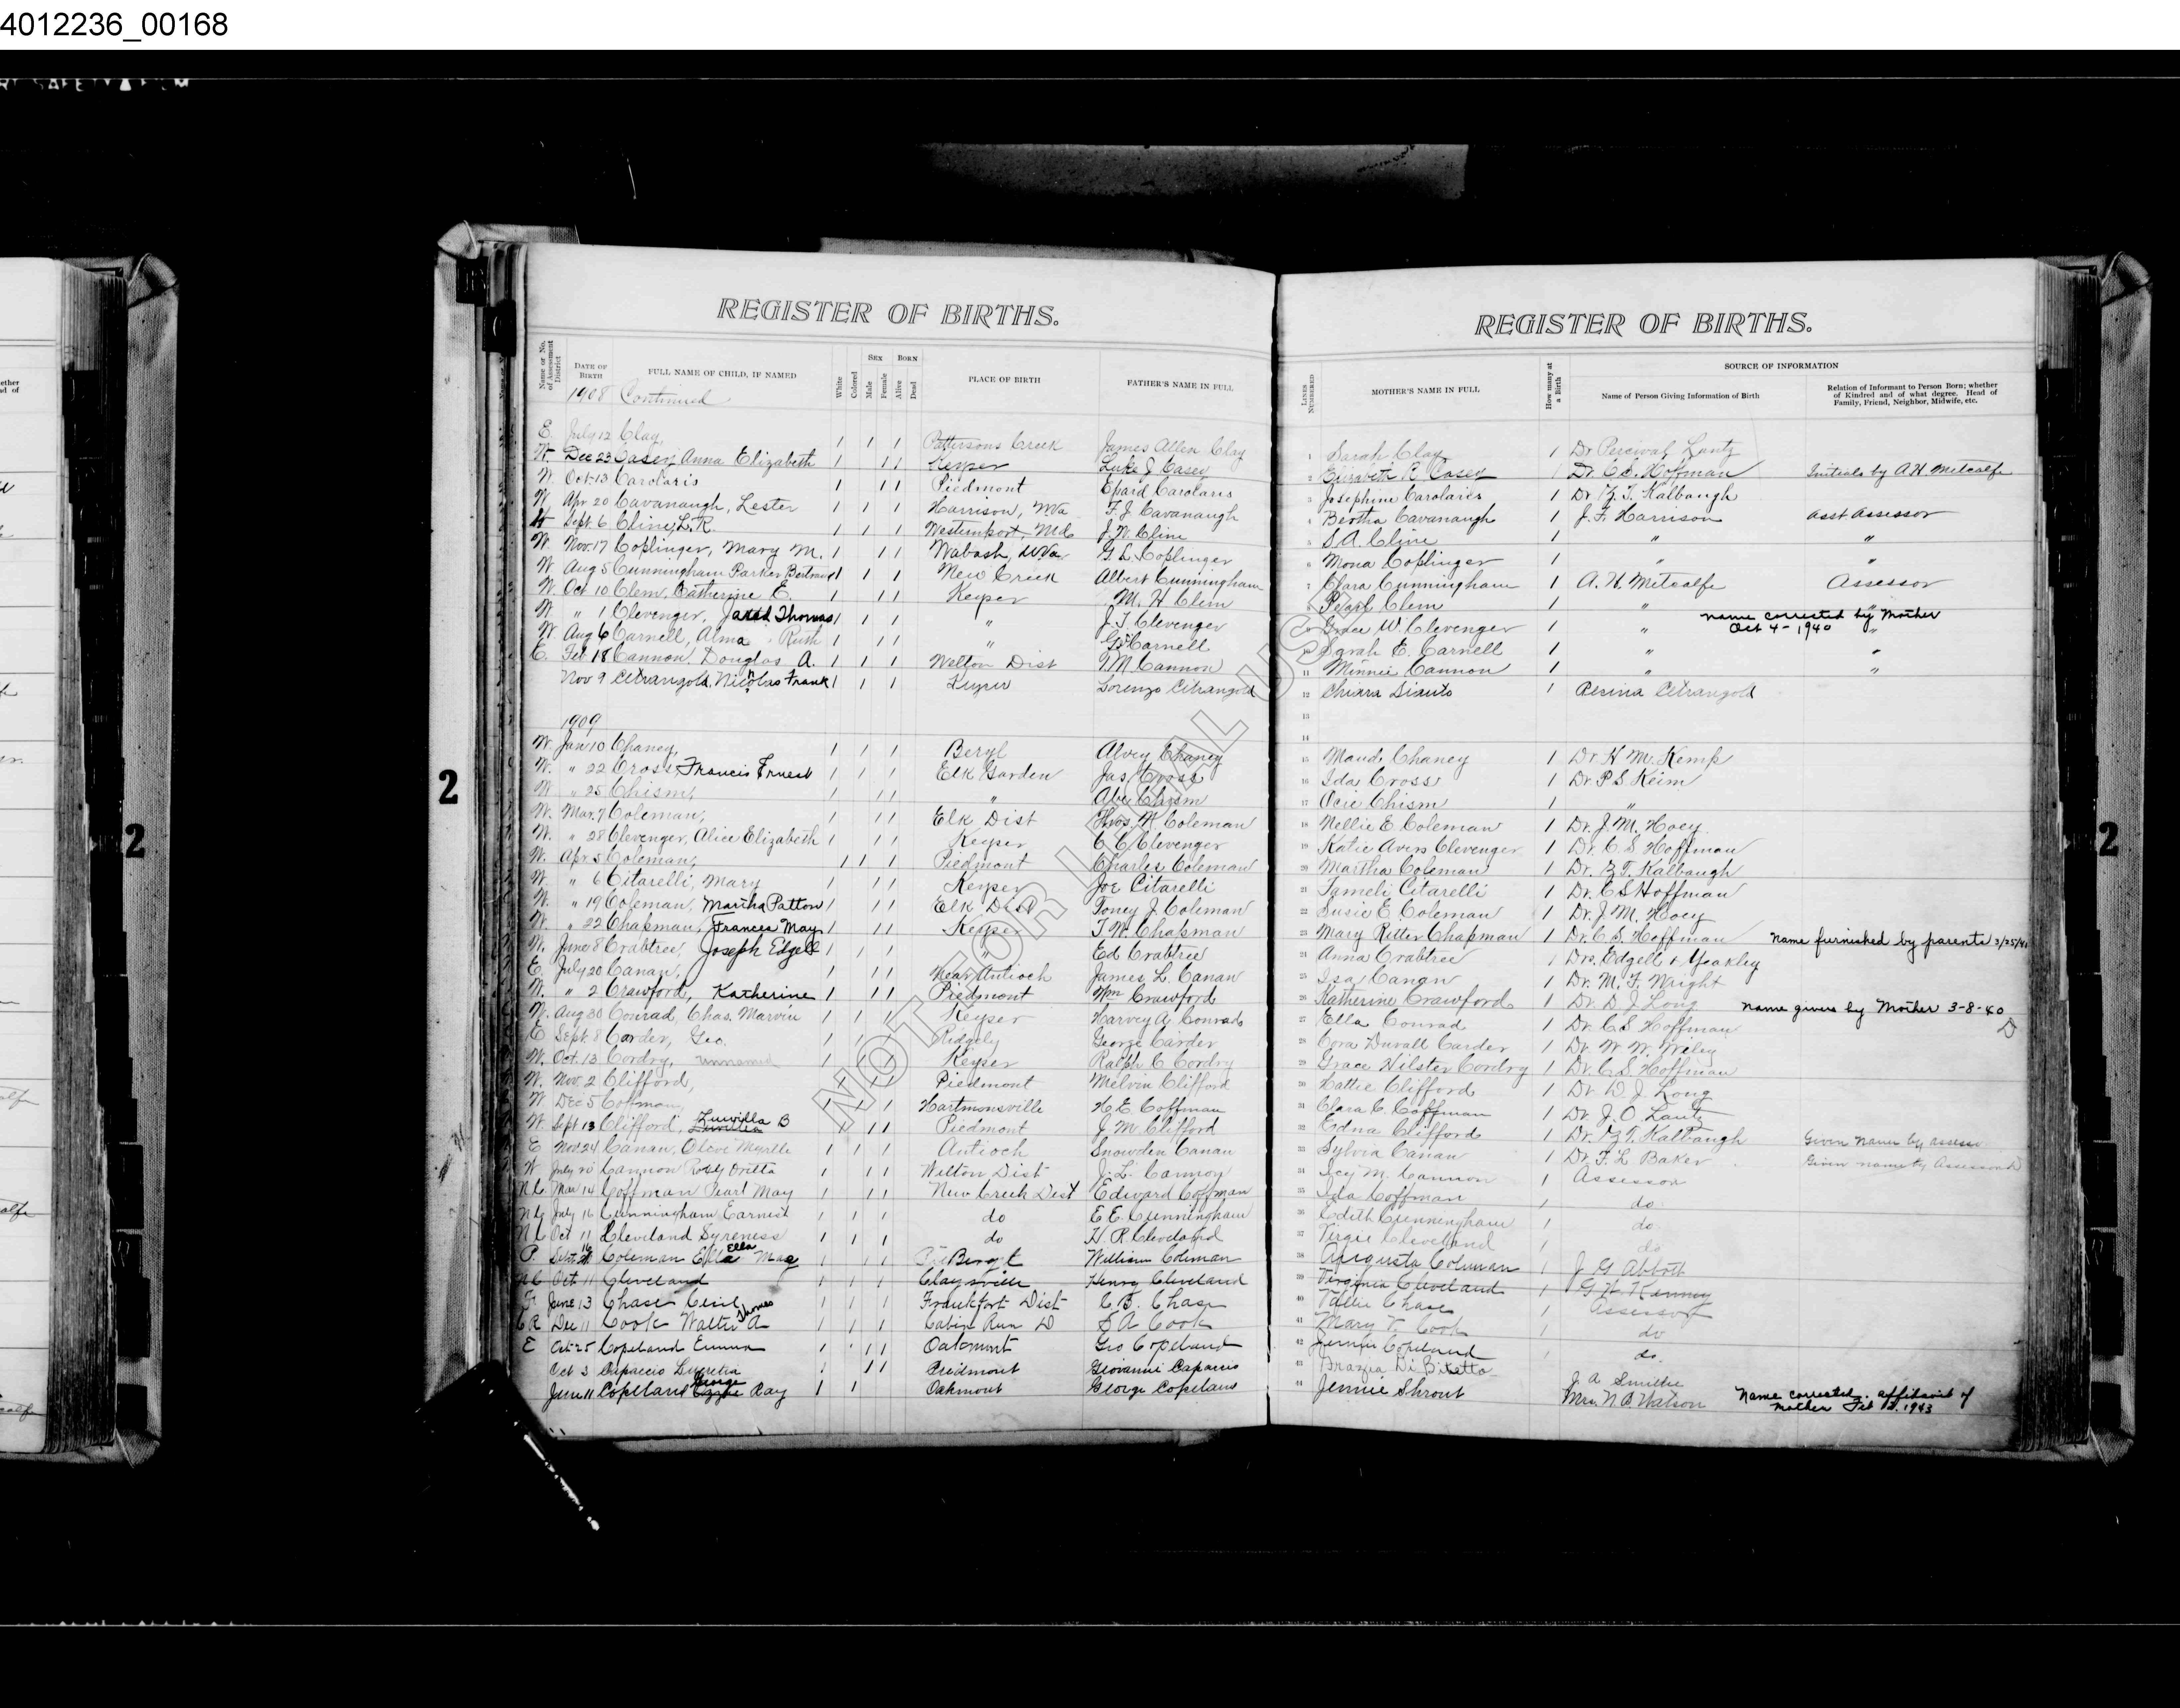 4012236_00168
REGISTER OF BIRTHS.
Name or No. of Assessment District
DATE OF BIRTH
FULL NAME OF CHILD, IF NAMED
White
Colored
SEX
Male
Female
BORN
Alive
Dead
PLACE OF BIRTH
FATHER'S NAME IN FULL
1908 Continued
E. July 12 Clay, 1 1 1 Pattersons Creek James Allen Clay
W. Dec 23 Casey, Anna Elizabeth 1 1 1 Keyser Luke J Casey
W. Oct 13 Carolaris 1 1 1 Piedmont Carolaris
W Apr 20 Cavanaugh, Lester 1 1 1 Harrison, WVa F. J Cavanaugh
Sept. 6 Cline, L. R. 1 1 1 Westernport, Md J. W Cline
W. Nov. 17 Coplinger, Mary M. 1 1 1 Wabash, WVa G L Coplinger
W Aug 5 Cunningham Parker 1 1 1 New Creek Albert Cunningham
W. Oct 10 Clem, Catherine E. 1 1 1 Keyser M. H Clem
W " 1 Clevenger, Thomas 1 1 1 " J. T. Clevenger
W. Aug 6 Carnell, Alma Ruth 1 1 1 " Carnell
E. Feb 18 Cannon, Douglas A. 1 1 1 Welton Dist Cannon
Nov 9 Citrangola, Nicholas Frank 1 1 1 Keyser Lorenzo Citrangola
1909
W. Jan 10 Chaney, 1 1 1 Beryl Alvey Chaney
W. " 22 Cross, Francis Ernest 1 1 1 Elk Garden Jas Cross
W " 25 Chism, 1 1 1 " Abe Chism
W. Mar. 7 Coleman, 1 1 1 Elk Dist Thos. Coleman
W. " 28 Clevenger, Alice Elizabeth 1 1 1 Keyser C C Clevenger
W. Apr 5 Coleman, 1 1 1 Piedmont Charles Coleman
W " 6 Citarelli, Mary 1 1 1 Keyser Joe Citarelli
W. " 19 Coleman, Martha Patton 1 1 1 Elk Dist Toney J. Coleman
W. " 22 Chapman, Frances May 1 1 1 Keyser T. W. Chapman
W. June 8 Crabtree, Joseph Edgell 1 1 1 " Ed Crabtree
E. July 20 Canan, 1 1 1 Near Antioch James L. Canan
W. " 2 Crawford, Katherine 1 1 1 Piedmont Wm Crawford
W. Aug 30 Conrad, Chas. Marvin 1 1 1 Keyser Harvey A. Conrad
E Sept. 8 Carder, Geo. 1 1 1 Ridgely George Carder
W. Oct. 13 Cordry, unnamed 1 1 1 Keyser Ralph C Cordry
W. Nov. 2 Clifford, 1 1 1 Piedmont Melvin Clifford
W Dec 5 Coffman 1 1 1 Hartmonsville H E Coffman
W. Sept 13 Clifford, B 1 1 Piedmont J. M Clifford
E Nov. 24 Canan, Olive Myrtle 1 1 1 Antioch Snowden Canan
W July 20 Cannon 1 1 1 Welton Dist J. L. Cannon
N C Mar 14 Coffman Pearl May 1 1 1 New Creek Dist Edward Coffman
July 16 Cunningham Earnest 1 1 1 do E E. Cunningham
N C Oct 11 Cleveland Syreness 1 1 1 do H R Cleveland
P Sept Coleman Ella Mae 1 1 1 William Coleman
N C Oct 11 Cleveland 1 1 1 Claysville Henry Cleveland
Fr June 13 Chase Cecil 1 1 1 Frankfort Dist C B. Chase
C R Dec 11 Cook Walter Thomas A 1 1 1 Cabin Run D S A Cook
E Oct 25 Copeland Emma 1 1 1 Oakmont Geo Copeland
Oct 3 Capaccio Lucretia 1 1 1 Piedmont Giovanni Capaccio
June 11 Copeland George Ray 1 1 Oakmont George Copeland
NOT FOR LEGAL USE
2
REGISTER OF BIRTHS.
LINES NUMBERED
MOTHER'S NAME IN FULL
How many at a Birth
SOURCE OF INFORMATION
Name of Person Giving Information of Birth
Relation of Informant to Person Born; whether of Kindred and of what degree. Head of Family, Friend, Neighbor, Midwife, etc.
1 Sarah Clay 1 Dr Percival Lantz
2 Elizabeth R Casey 1 Dr. C S. Hoffman Initials by A H Metcalfe
3 Josephine Carolaris 1 Dr Z. T. Kalbaugh
4 Bertha Cavanaugh 1 J. F. Harrison Asst. Assessor
5 S A. Cline 1 " "
6 Mona Coplinger 1 " "
7 Clara Cunningham 1 A. H. Metcalfe Assessor
8 Pearl Clem 1 " "
name corrected by Mother
9 Grace W. Clevenger 1 " Oct 4 - 1940 "
10 Sarah E. Carnell 1 " "
11 Minnie Cannon 1 " "
12 Chiara Sianto 1 Citrangola
13
14
15 Maud Chaney 1 Dr H M. Kemp
16 Ida Cross 1 Dr. P S Keim
17 Ocie Chism 1 "
18 Nellie E. Coleman 1 Dr. J. M. Hoey
19 Katie Avers Clevenger 1 Dr. C S Hoffman
20 Martha Coleman 1 Dr. Z T. Kalbaugh
21 Tameli Citarelli 1 Dr. C S Hoffman
22 Susie E Coleman 1 Dr. J. M. Hoey
23 Mary Ritter Chapman 1 Dr. C S. Hoffman name furnished by parents
24 Anna Crabtree 1 Drs. Edgell & Yeakley
25 Isa Canan 1 Dr. M. F. Wright
26 Katherine Crawford 1 Dr. D J Long name given by Mother 3-8-40
27 Ella Conrad 1 Dr. C S Hoffman
28 Cora Duvall Carder 1 Dr W W. Wiley
29 Grace Hilster Cordry 1 Dr. C S. Hoffman
30 Hattie Clifford 1 Dr D J Long
31 Clara C. Coffman 1 Dr. J. O. Lantz
32 Edna Clifford 1 Dr. Z T. Kalbaugh Given name by assessor
33 Sylvia Canan 1 Dr F. L Baker Given name by Assessor
34 Icy M. Cannon 1 Assessor
35 Ida Coffman 1 do
36 Edith Cunningham 1 do
37 Virgie Cleveland 1 do
38 Augusta Coleman 1 J. G Abbott
39 Virginia Cleveland 1 G H. Kenny
40 Tallie Chase 1 Assessor
41 Mary V. Cook 1 do
42 Jennie Copeland 1 do.
43 Brazia Di Bisetto J. A Smiltie
44 Jennie Shrout Mrs. N. B. Watson Name corrected. affidavit of Mother Feb 1943
2